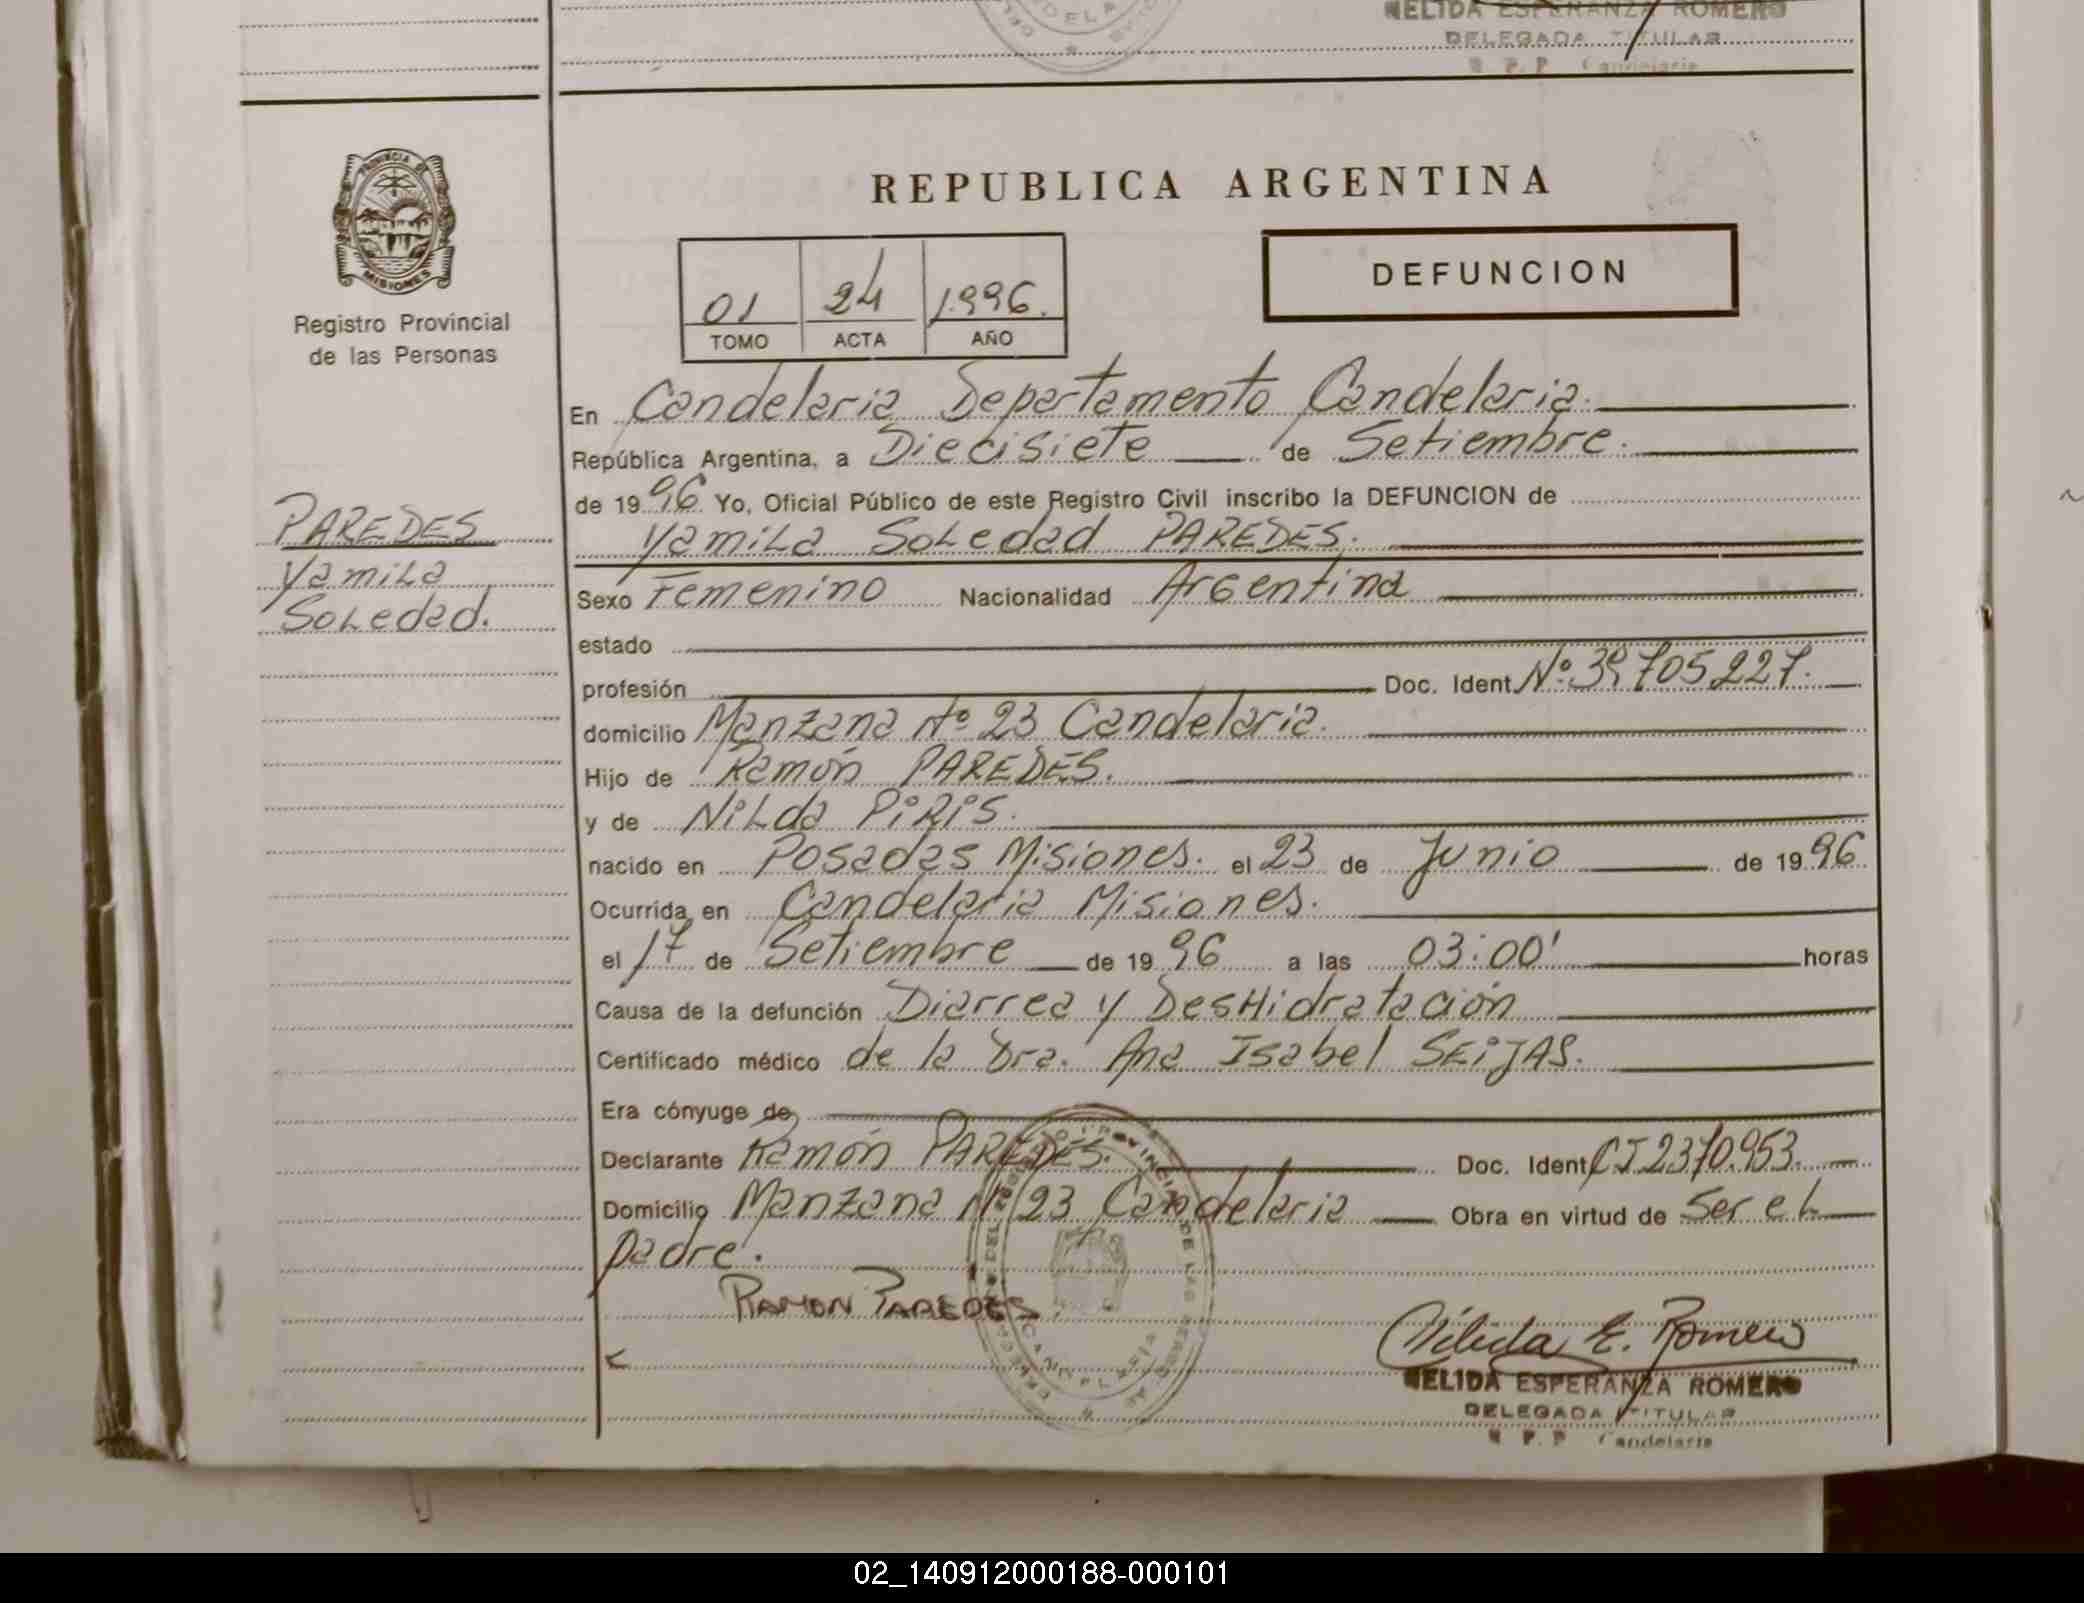 NELIDA ESPERANZA ROMERO
DELEGADA TITULAR
R P. P Candelaria
PROVINCIA DE
MISIONES
Registro Provincial
de las Personas
REPUBLICA ARGENTINA
DEFUNCION
01 24 1.996.
TOMO ACTA AÑO
En Candelaria Departamento Candelaria.
República Argentina, a Diecisiete de Setiembre.
de 19 96 Yo, Oficial Público de este Registro Civil inscribo la DEFUNCION de
Yamila Soledad PAREDES.
PAREDES
Yamila
Soledad.
Sexo Femenino Nacionalidad Argentina
estado
profesión Doc. Ident Nº: 39705227.
domicilio Manzana Nº 23 Candelaria.
Hijo de Ramón PAREDES.
y de Nilda PIRIS.
nacido en Posadas Misiones. el 23 de Junio de 19 96
Ocurrida en Candelaria Misiones.
el 17 de Setiembre de 19 96 a las 03:00' horas
Causa de la defunción Diarrea y DesHidratación
Certificado médico de la Dra. Ana Isabel SEIJAS.
Era cónyuge de
Declarante Ramón PAREDES. Doc. Ident CI 2370.953.
Domicilio Manzana Nº 23 Candelaria Obra en virtud de Ser el
padre.
RAMON PAREDES.
Nélida E. Romero
NELIDA ESPERANZA ROMERO
DELEGADA TITULAR
R P. P Candelaria
02_140912000188-000101